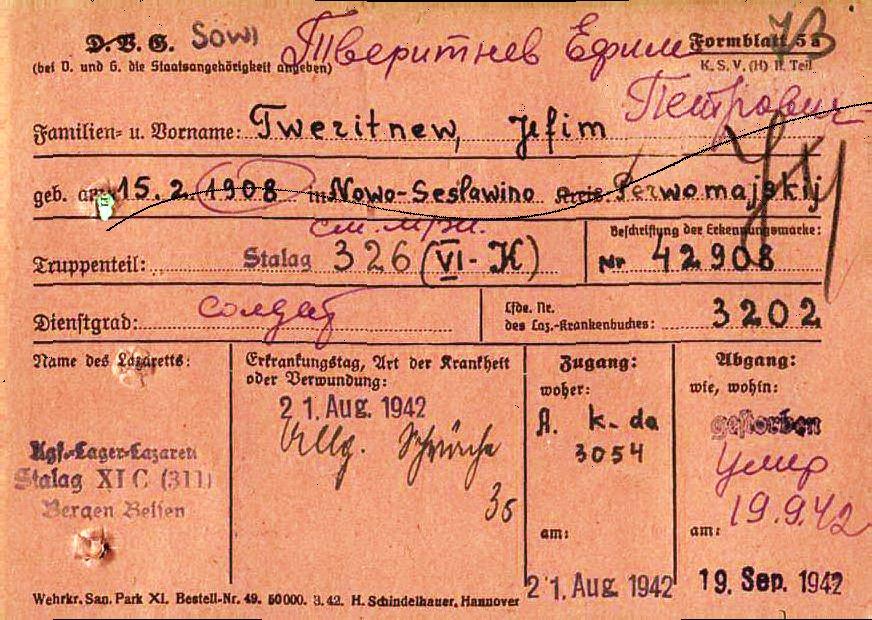 D. V. G. Sowj Тверитнев Ефим Formblatt 5a
(bei D. und G. die Staatsangehörigkeit angeben) K. S. V. (H) II. Teil
Петрович
Familien- u. Vorname: Tweritnew, Jefim
geb. am 15. 2. 1908 in Nowo-Seslawino Kreis Perwomajskij
Beschriftung der Erkennungsmarke:
Truppenteil: Stalag 326 (VI-K) Nr 42908
Dienstgrad: солдат
Lfde. Nr.
des Laz.-Krankenbuches: 3202
Name des Lazaretts: Erkrankungstag, Art der Krankheit Zugang: Abgang:
oder Verwundung: woher: wie, wohin:
21. Aug. 1942 A. k-do gestorben
Kgf.-Lager-Lazarett Allg. Schwäche 3054 умер
Stalag XI C (311)
Bergen Belsen 36 19.9.42
am: am:
21. Aug. 1942 19. Sep. 1942
Wehrkr. San. Park XI. Bestell-Nr. 49. 50000. 3.42. H. Schindelhauer, Hannover